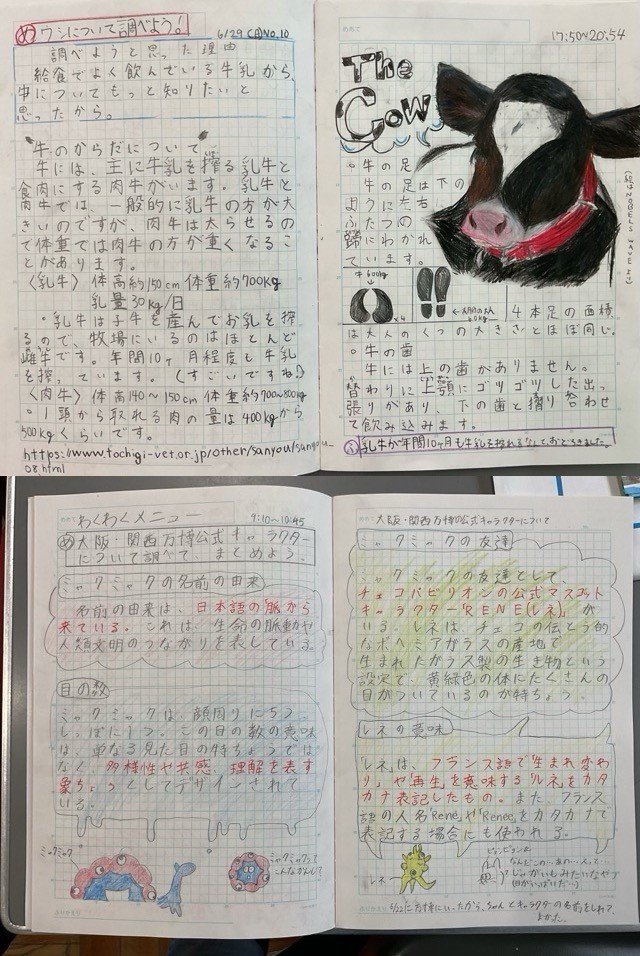 め ウシについて調べよう!
6/29 (月) No.10
調べようと思った理由
給食でよく飲んでいる牛乳から、
牛についてもっと知りたいと
思ったから。
牛のからだについて
牛には、主に牛乳を搾る乳牛と
食肉にする肉牛がいます。乳牛と
肉牛では、一般的に乳牛の方が大
きいのですが、肉牛は太らせるの
で体重では肉牛の方が重くなるこ
とがあります。
〈乳牛〉体高約150cm 体重約700kg
乳量30kg/日
・乳牛は子牛を産んでお乳を搾
るので、牧場にいるのはほとんど
雌牛です。年間10ヶ月程度も牛乳
を搾っています。(すごいですね♪)
〈肉牛〉体高140〜150cm 体重約700〜800kg
・1頭から取れる肉の量は400kgから
500kgくらいです。
https://www.tochigi-vet.or.jp/other/sanyou/sanyou
08.html
17:50〜20:54
The
Cow
牛の足
牛の足は下の
ように たち
ふたつの
蹄にわかれ
ています。
牛600kg
×4
4本足の面積
は大人のくつの大きさとほぼ同い。
○牛の歯
牛には上の歯がありません。
替わりに上顎にゴツゴツした出っ
張りがあり、下の歯と摺り合わせ
て飲み込みます。
乳牛が年間10ヶ月も牛乳を搾れるなんて、おどろきました。
わくわくメニュー
9:10〜10:45
め 大阪・関西万博公式キャラクター
について調べて、まとめよう。
ミャクミャクの名前の由来
名前の由来は、日本語の「脈」から
来ている。これは、生命の脈動や
人類文明のつながりを表している。
目の数
ミャクミャクは、顔周りに5つ
しっぽに1つ。この目の数の意味
は、単なる見た目の特ちょうでは
なく、多様性や共感、理解を表す
象ちょうとしてデザインされて
いる。
ミャクミャク
ミャクミャクって
こんなかんじ?
大阪・関西万博の公式キャラクターについて
ミャクミャクの友達
ミャクミャクの友達として、
チェコパビリオンの公式マスコット
キャラクター「RENE(レネ)」が
いる。レネは、チェコの伝とう的
なボヘミアガラスの産地で
生まれたガラス製の生き物という
設定で、黄緑色の体にたくさんの
目がついているのが特ちょう。
レネの意味
「レネ」は、フランス語で「生まれ変わ
り」や「再生」を意味する「ルネ」をカタ
カナ表記したもの。また、フランス
語の人名「Rene」や「Renee」をカタカナで
表記する場合にも使われる。
レネ
なんだこの…あれ…人って
じゃがいもみたいなやつ
(目がいっぱいだ…)
6/22に万博にいったから、ちゃんとキャラクターの名前をしれて、
よかった。